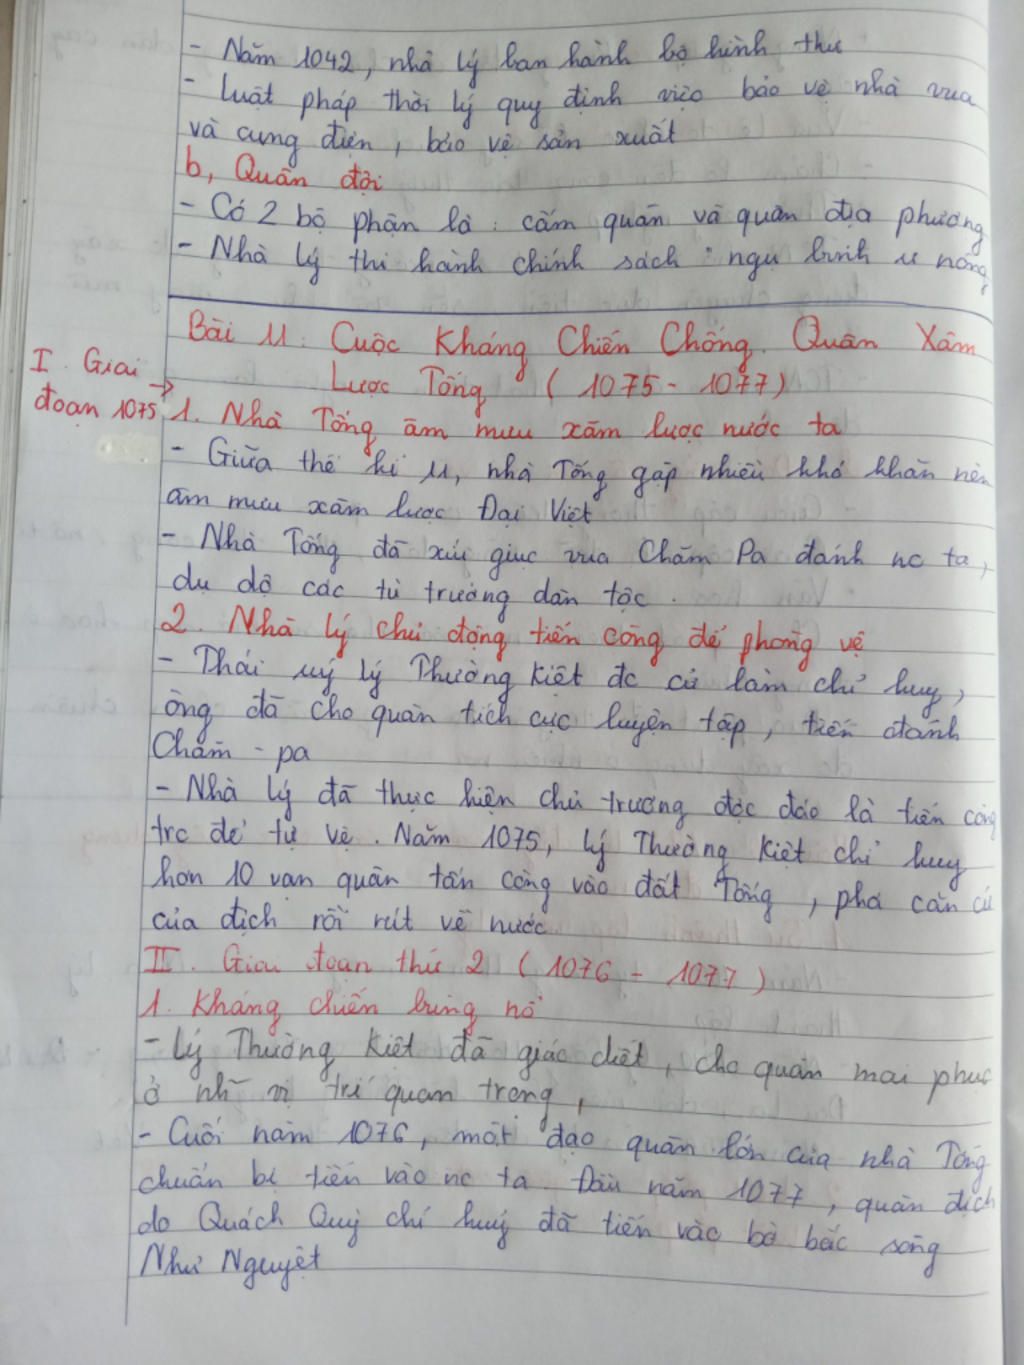 - Năm 1042, nhà Lý ban hành bộ hình thư
- Luật pháp thời Lý quy định việc bảo vệ nhà vua
và cung điện, bảo vệ sản xuất
b, Quân đội
- Có 2 bộ phận là : cấm quân và quân địa phương
- Nhà Lý thi hành chính sách " ngụ binh ư nông
Bài 11: Cuộc Kháng Chiến Chống Quân Xâm
Lược Tống ( 1075 - 1077 )
I. Giai
đoạn 1075
1. Nhà Tống âm mưu xâm lược nước ta
- Giữa thế kỉ 11, nhà Tống gặp nhiều khó khăn nên
âm mưu xâm lược Đại Việt
- Nhà Tống đã xúi giục vua Chăm Pa đánh nc ta,
dụ dỗ các tù trưởng dân tộc .
2. Nhà Lý chủ động tiến công để phòng vệ
- Thái uý Lý Thường Kiệt đc cử làm chỉ huy,
ông đã cho quân tích cực luyện tập, tiến đánh
Chăm - pa
- Nhà Lý đã thực hiện chủ trương độc đáo là tiến công
trc để tự vệ. Năm 1075, Lý Thường Kiệt chỉ huy
hơn 10 vạn quân tấn công vào đất Tống, phá căn cứ
của địch rồi rút về nước
II. Giai đoạn thứ 2 ( 1076 - 1077 )
1. Kháng chiến bùng nổ
- Lý Thường Kiệt đã giác diết, cho quân mai phục
ở nh~ vị trí quan trọng,
- Cuối năm 1076, một đạo quân lớn của nhà Tống
chuẩn bị tiến vào nc ta. Đầu năm 1077, quân địch
do Quách Quỳ chỉ huy đã tiến vào bờ bắc sông
Như Nguyệt